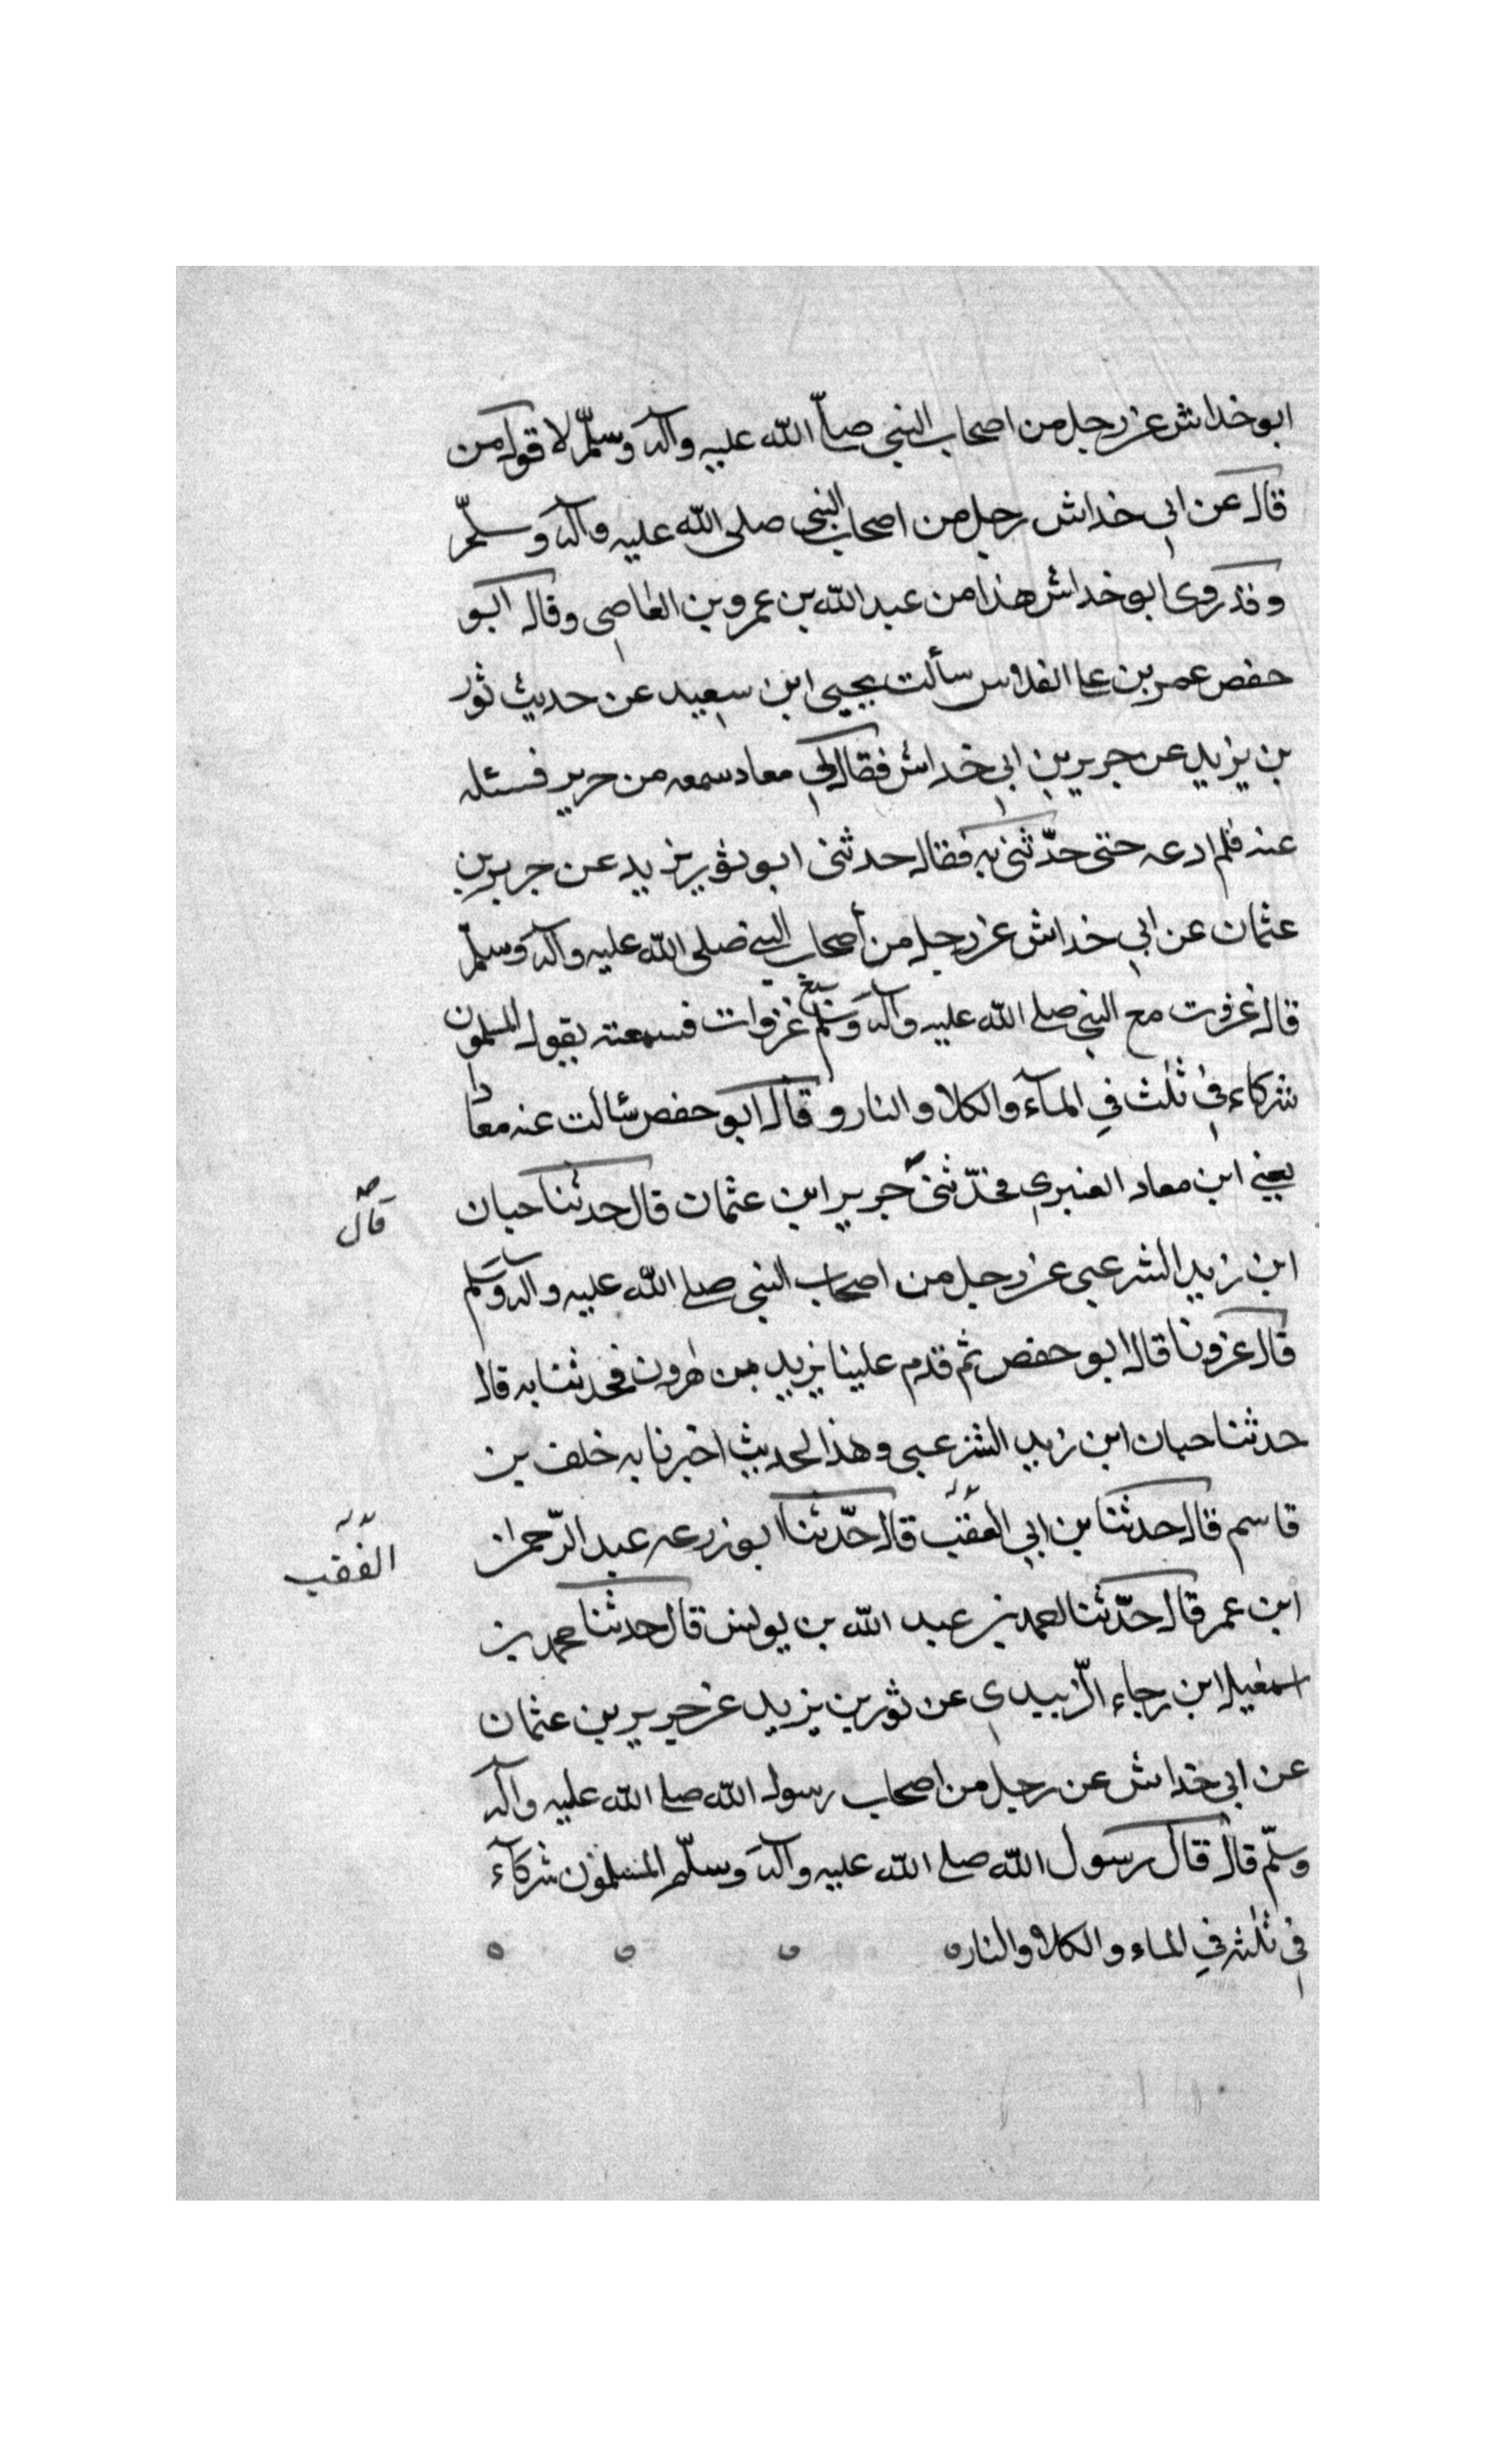 ابو خداش عن رجل من اصحاب النبي صلّا الله عليه وآله وسلّم لا قول من
قال عن ابي خداش رجل من اصحاب النبي صلى الله عليه وآله وسلّم
وقد روى ابو خداش هذا من عبد الله بن عمرو بن العاصي وقال ابو
حفص عمر بن علي الفلاس سألت يحيى ابن سعيد عن حديث ثور
بن يزيد عن جرير بن ابي خداش فقال لي معاد سمعه من حرير فسئله
عنه فلم ادعه حتى حدّثني به فقال حدثني ابو ثور يزيد عن جرير بن
عثمان عن ابي خداش عن رجل من أصحاب النبي صلى الله عليه وآله وسلّم
قال غزوت مع النبي صلى الله عليه وآله وسلم سبع غزوات فسمعته يقول المسلمون
شركاء في ثلث في المآء والكلا والنار وقال ابو حفص سالت عنه معادا
يعني ابن معاد العنبري فحدّثني جرير ابن عثمان قال حدثنا حبان
قال
ابن زيد الشرعبي عن رجل من اصحاب النبي صلى الله عليه وآله وسلم
قال غزونا قال ابو حفص ثم قدم علينا يزيد بن هرون فحدثنا به قال
حدثنا حبان ابن زيد الشرعبي وهذا لحديث اخبرنا به خلف بن
قاسم قال حدثنا بن ابي العقب قال حدّثنا ابو زرعه عبد الرّحمن
الفقب
ابن عمر قال حدّثنا احمد بن عبد الله بن يونس قال حدثنا محمد بن
اسمعيل ابن رجاء الزّبيدي عن ثور بن يزيد عن حرير بن عثمان
عن ابي خداش عن رجل من اصحاب رسول الله صلى الله عليه وآله
وسلّم قال قال رسول الله صلى الله عليه وآله وسلّم المسلمون شركآء
في ثلث في الماء والكلا والناره